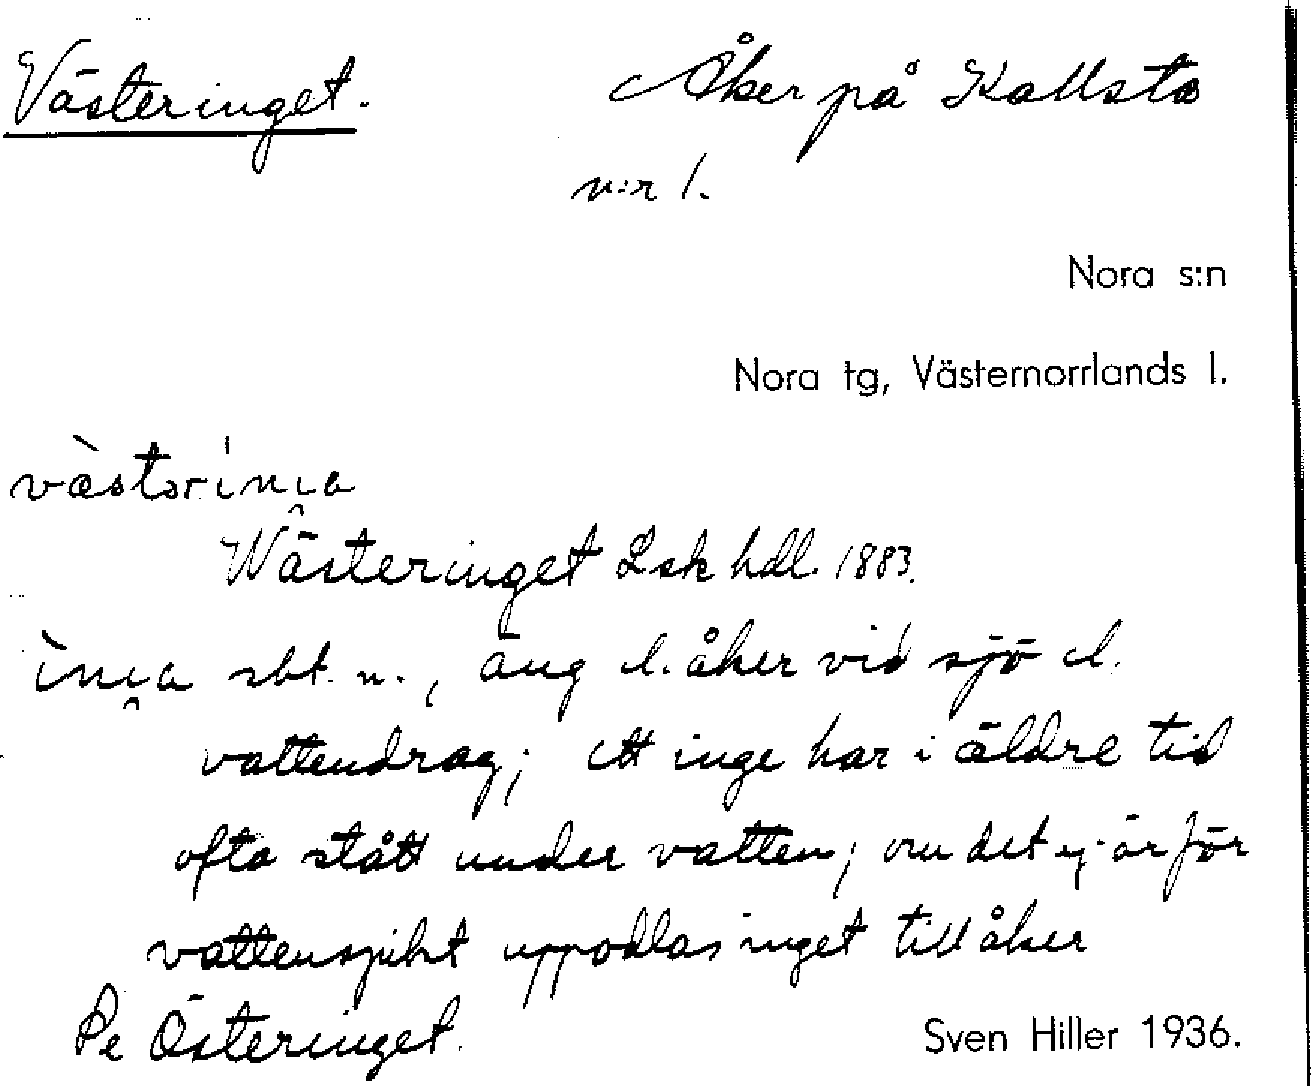 Västeringet. Åker på Kallsta
n:r 1.
Nora s:n
Nora tg, Västernorrlands l.
Wästeringet Lsk hdl 1883.
sbt. n., äng l. åker vid sjö el.
vattendrag; ett inge har i äldre tid
ofta stått under vatten; om det ej är för
vattensjukt uppodlas inget till åker
Österinget. Sven Hiller 1936.